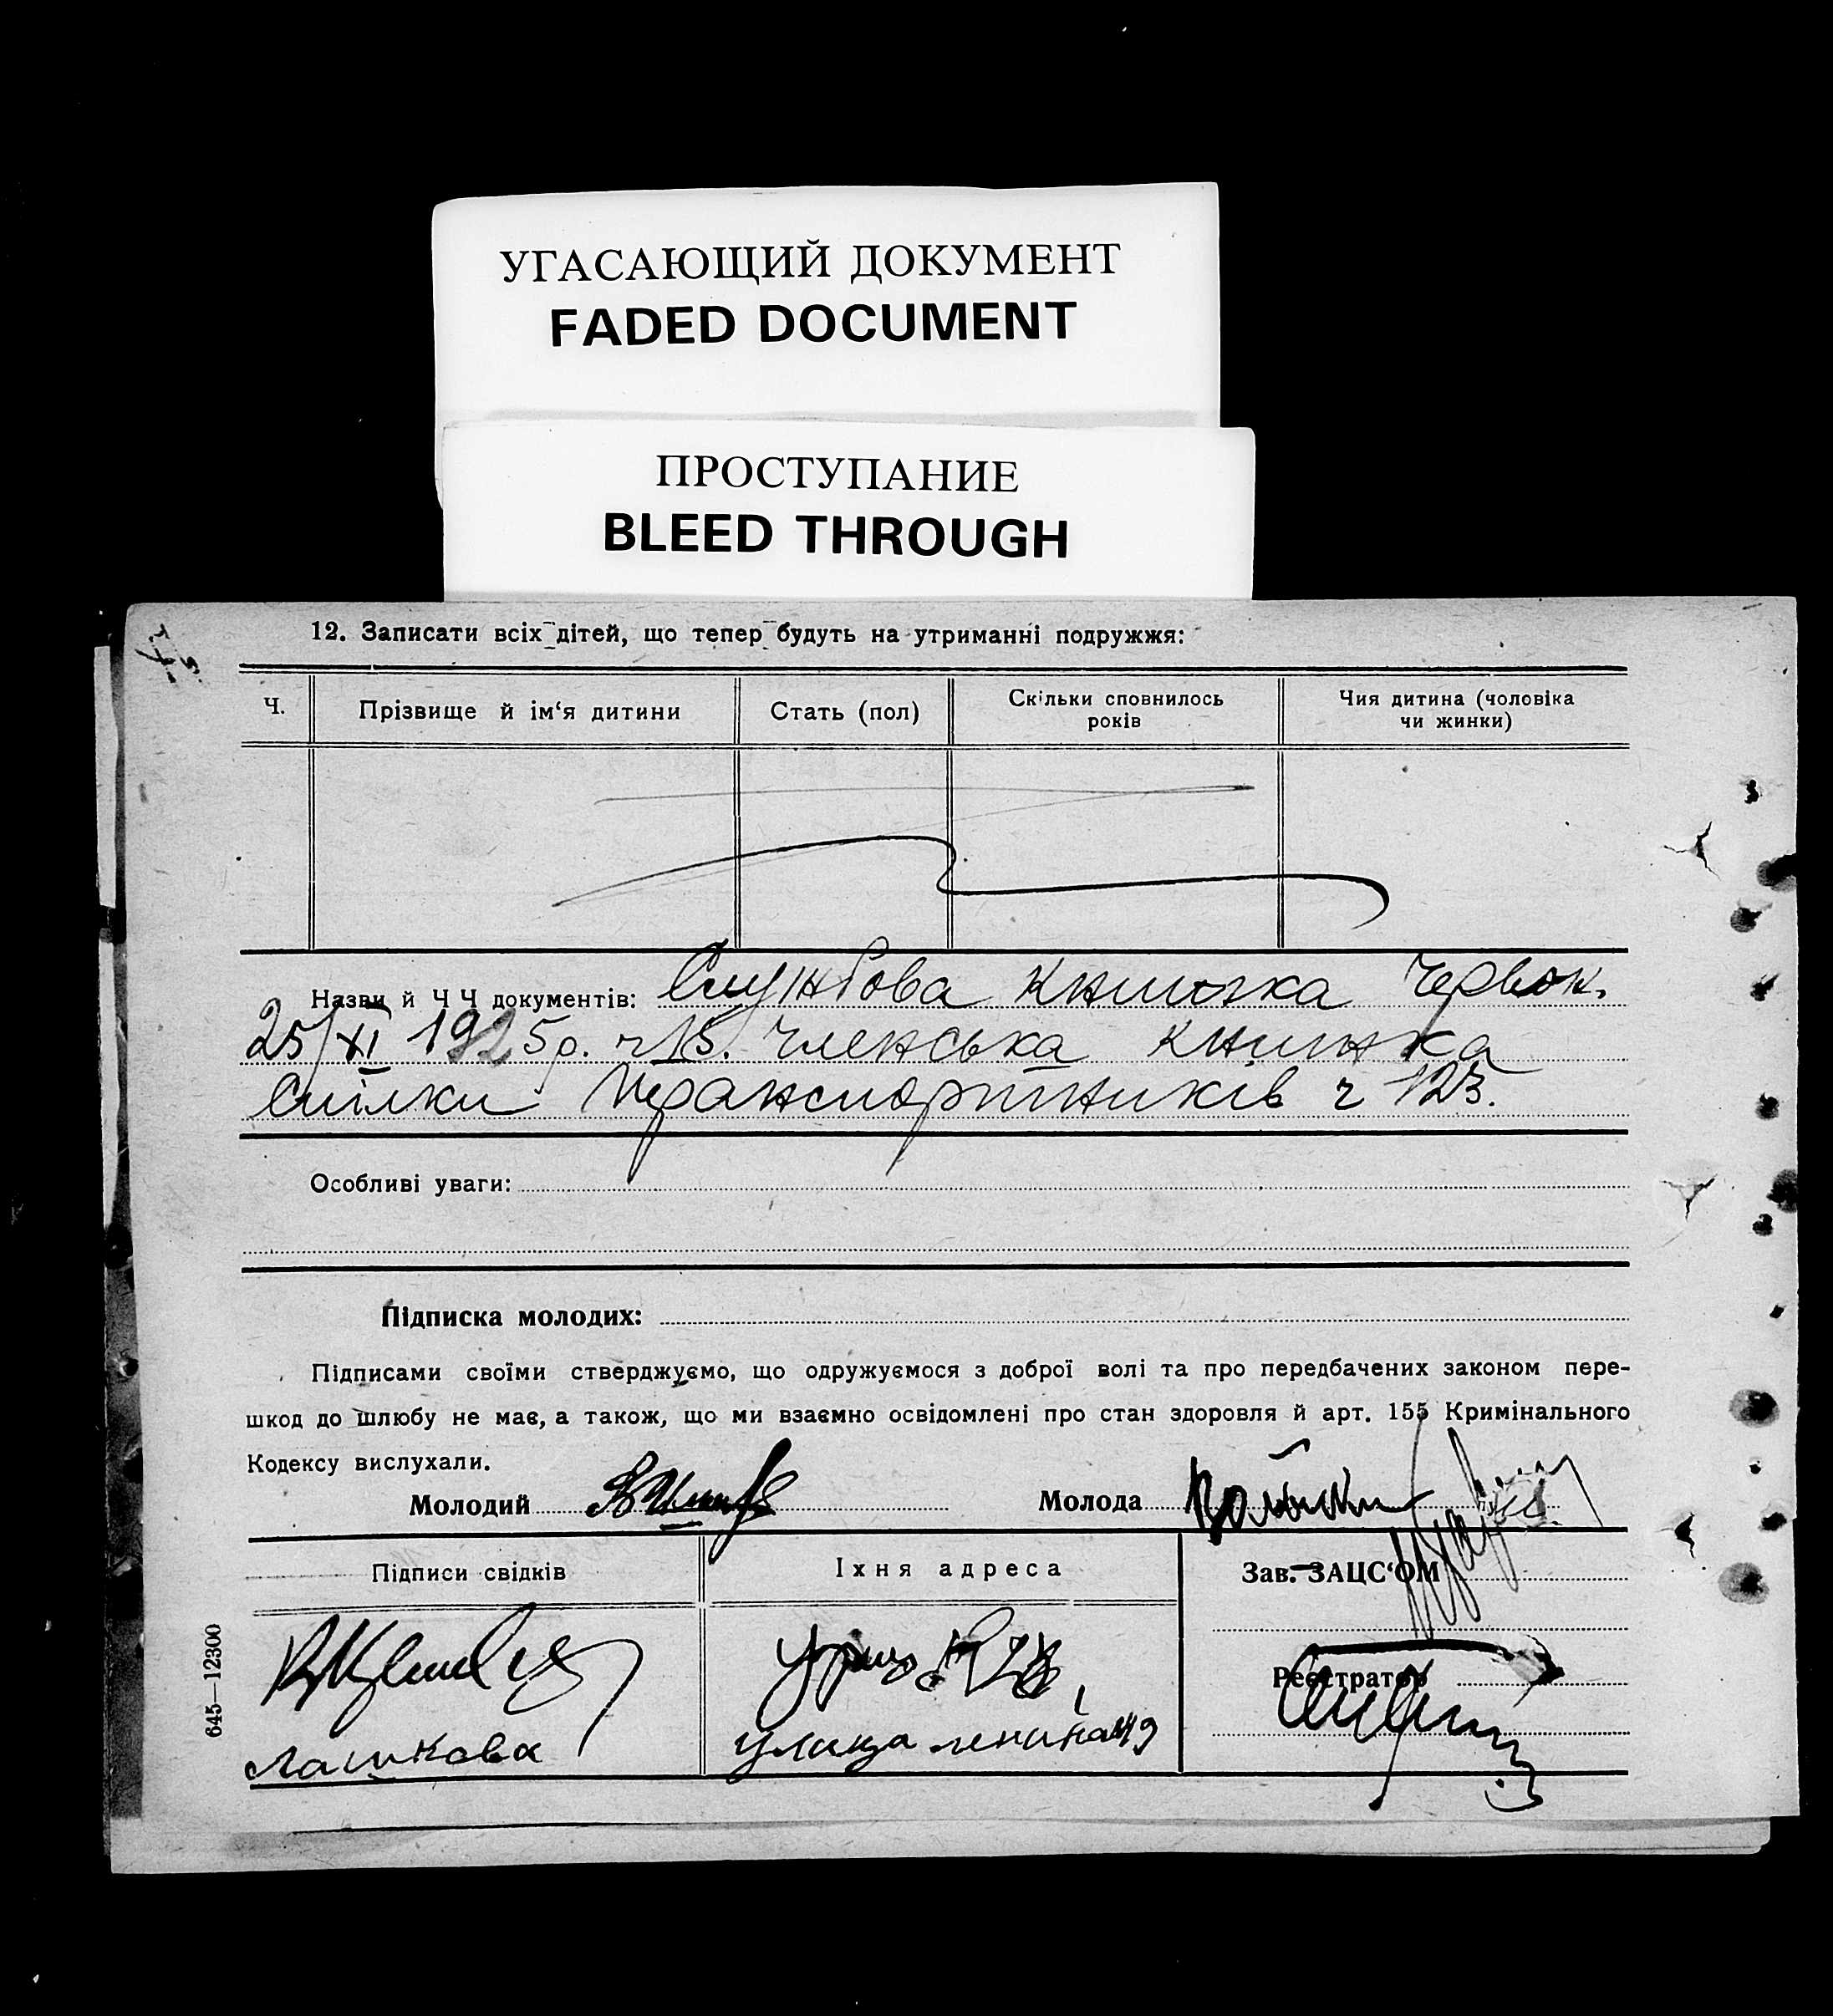 УГАСАЮЩИЙ ДОКУМЕНТ
FADED DOCUMENT
ПРОСТУПАНИЕ
BLEED THROUGH
12. Записати всіх дітей, що тепер будуть на утриманні подружжя:
Ч.
Прізвище й ім‘я дитини
Стать (пол)
Скільки сповнилось
років
Чия дитина (чоловіка
чи жинки)
Назви й Ч Ч документів: Службова книжка Червок.
25/XI 1925р. ч 15. Членська книжка
Спілки Транспортників ч 123.
Особливі уваги:
Підписка молодих:
Підписами своїми стверджуємо, що одружуємося з доброї волі та про передбачених законом пере-
шкод до шлюбу не має, а також, що ми взаємно освідомлені про стан здоровля й арт. 155 Кримінального
Кодексу вислухали.
Молодий
Молода
Підписи свідків
Їхня адреса
Зав. ЗАЦС‘ОМ
Реєстратор
Лашкова
улица ленина 49
645—12300